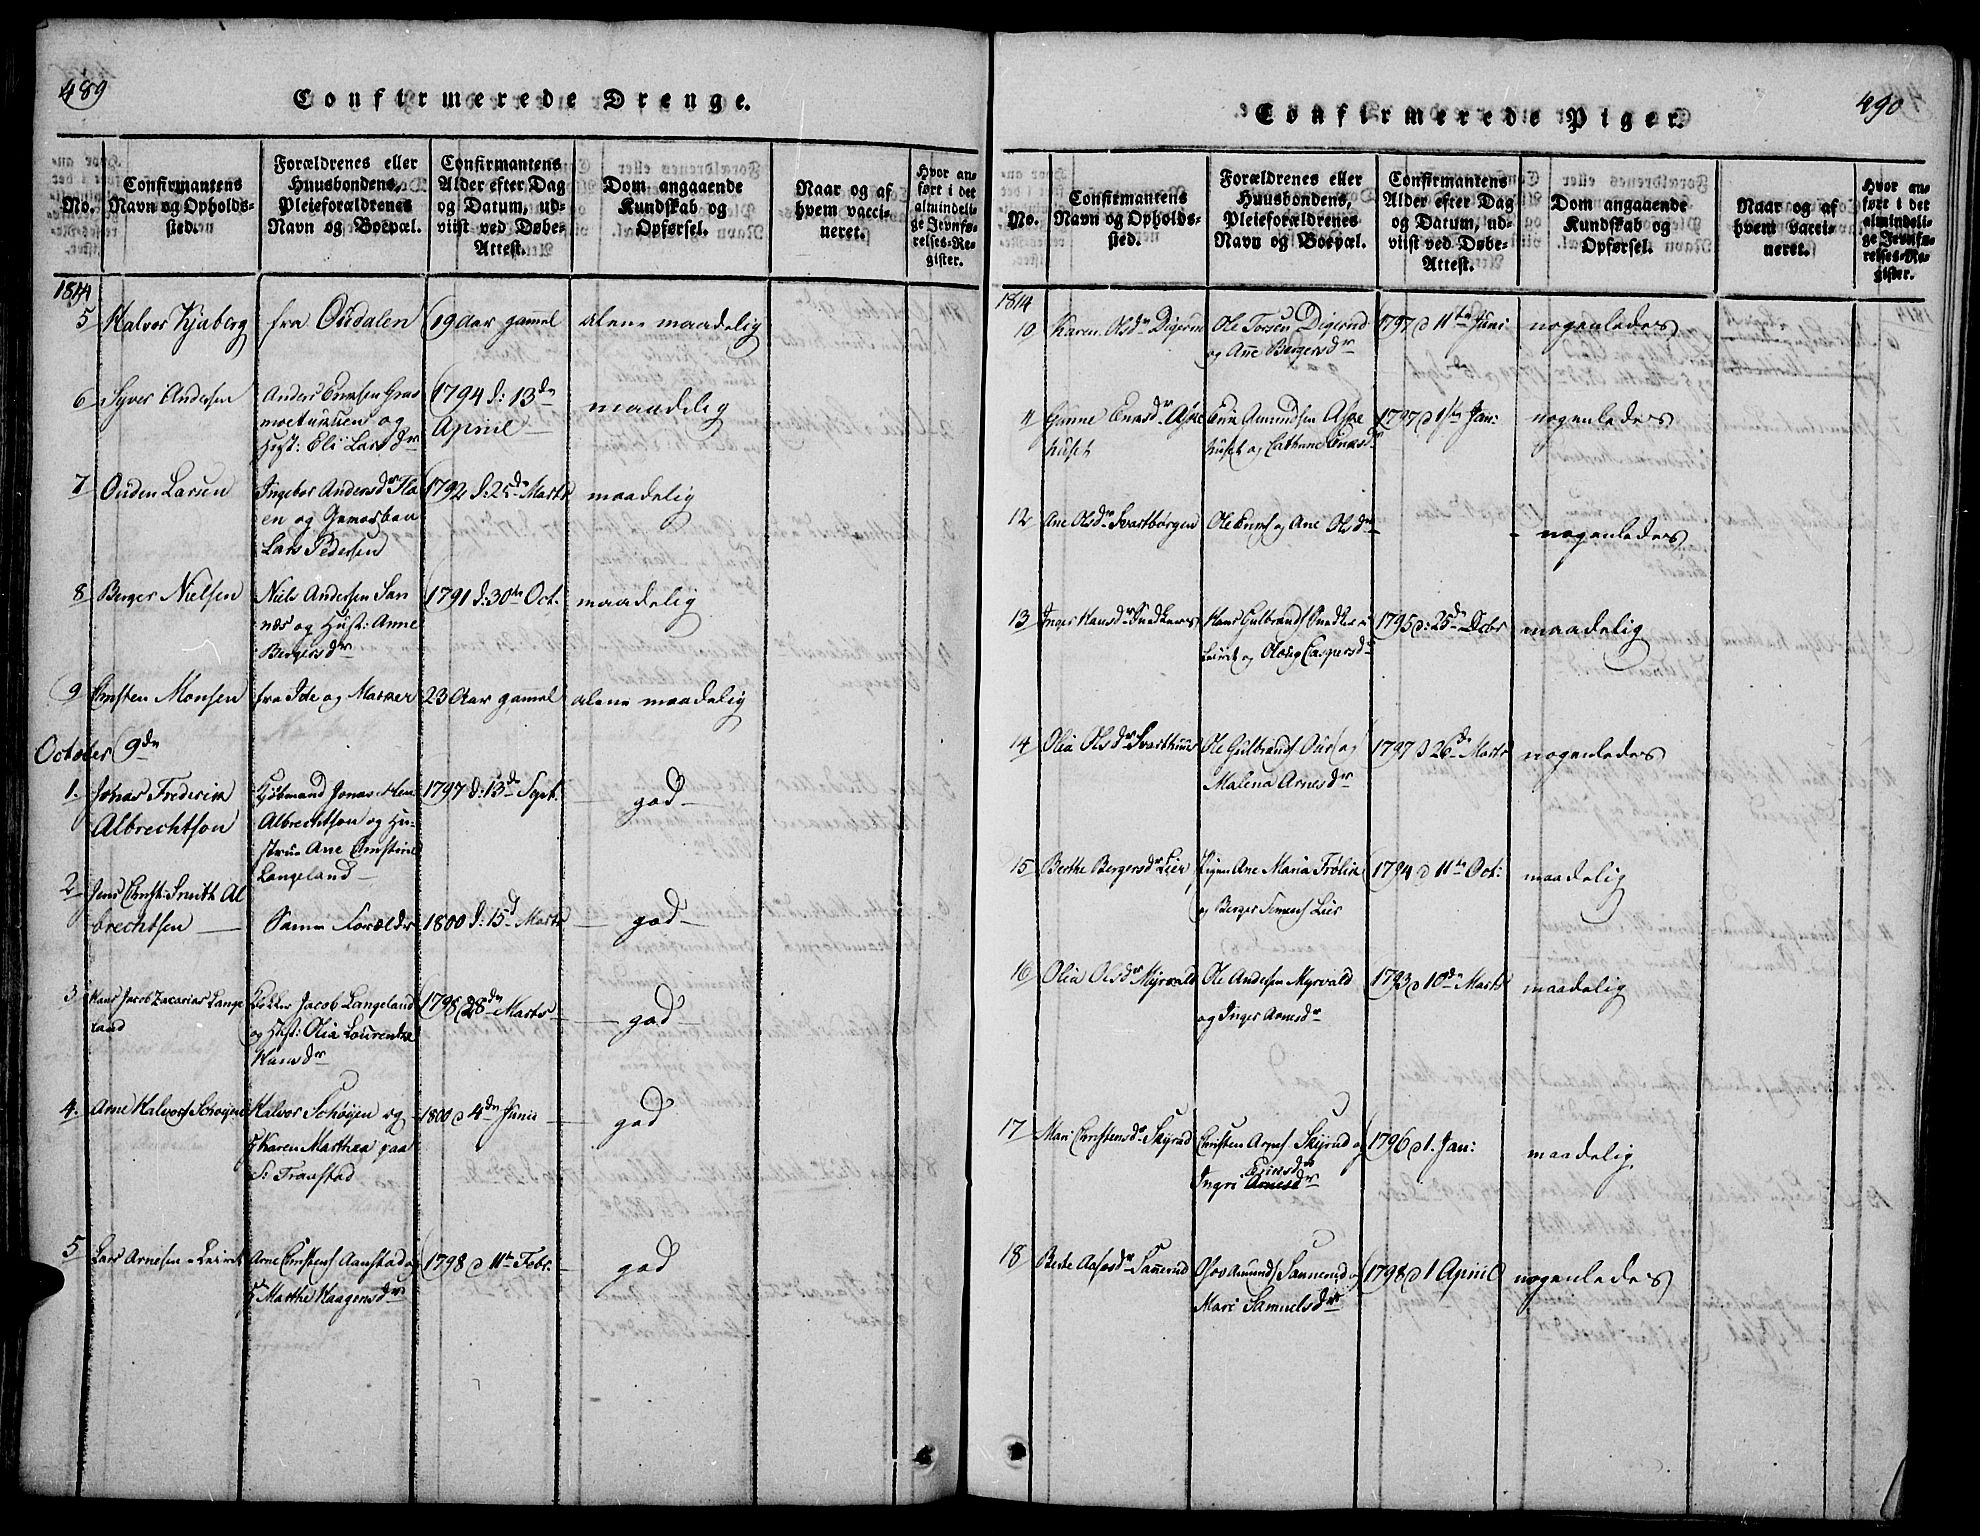 489
Confirmerede Drenge.
No.
Confirmantens
Navn og Opholds-
sted.
Forældrenes eller
Huusbondens,
Pleieforældrenes
Navn og Boepæl.
Confirmantens
Alder efter Dag
og Datum, ud-
viist ved Døbe-
Attest.
Dom angaaende
Kundskab og
Opførsel.
Naar og af
hvem vacci-
neret.
Hvor an-
ført i det
almindeli-
ge Jevnfø-
relses-Re-
gister.
1814
5 Halvor Kjaberg fra Oudalen 19 Aar gammel alene maadelig
6 Syver Andersen Anders
og
Hust: Eli Larsdr
1794 d: 13de
April
maadelig
7 Ouden Larsen Ingebor Andersdr
en og
Lars Pedersen
1792 d: 25de Marts maadelig
8 Berger Nielsen Niels Andersen San
næs og Hust: Anne
Bergersdr
1791 d: 30te Oct. maadelig
9 Christen Monsen fra Ide og Marker 23 Aar gamel alene maadelig
October 9de
1. Johas Frederik
Albrechtson
Kjøbmand Jonas
Albrechtson og Hu-
strue Ane Christine
Langeland
1797 d: 13de Sept. god
2 Jens Christ: Smith Al
brechtsen
Samme Forældre 1800 d: 15d Marts god
3 Hans Jacob Zacarias Lange
land
Klokker Jacob Langeland
og Hust: Olia Lourentze
Hansdr
1798 28de Marts god
4. Arne Halvors Schøyen Halvor Schøyen og
Karen Marthea paa
S: Transtad
1800 d 4de Junii god
5 Lars Arnesen Leiret Arne Christens Aanstad og
Marthe Haagensdr
1798 d 11te Febr. god
490
Confirmerede Piger.
No.
Confirmantens
Navn og Opholds-
sted.
Forældrenes eller
Huusbondens,
Pleieforældrenes
Navn og Boepæl.
Confirmantens
Alder efter Dag
og Datum, ud-
viist ved Døbe-
Attest.
Dom angaaende
Kundskab og
Opførsel.
Naar og af
hvem vacci-
neret.
Hvor an-
ført i det
almindeli-
ge Jevnfø-
relses-Re-
gister.
1814
10 Karen Olsdr Digerud Ole Torsen Digerud
og Ane Bergersdr
1797 d 11te Juni nogenledes
11 Gunne Ericsdr Aspe
huset
Eric Amundsen Aspe
huset og Cathrine Ericsdr
1797 d 1ste Jan: nogenledes
12 Ane Olsdr Svartbørgen Ole Erics og Ane Olsdr nogenledes
13 Inger Hansdr Snedkers Hans Gulbrands Snedker i
Leiret og Oloug Caspersdr
1795 d: 25de Decbr maadelig
14 Olia Olsdr Svarthuus Ole Gulbrands og
Malena Arnesdr
1797 d 26de Marts nogenledes
15 Berthe Bergersdr Lier Pigen Ane Maria Frølik
og Berger Simens Lier
1794 d 11te Oct: maadelig
16 Olia Olsdr Myrvold Ole Andersen Myrvald
og Inger Arnesdr
1793 d 10de Marts maadelig
17 Mari Christensdr Skyrud Christen Arnes Skyrud og
Ingri Ericsdr
Arnesdr
1796 d 1. Jan: maadelig
18 Berte Aasesdr Sanerud Amunds Sannerud og
Mari Samuelsdr
1798 d 1 April nogenledes